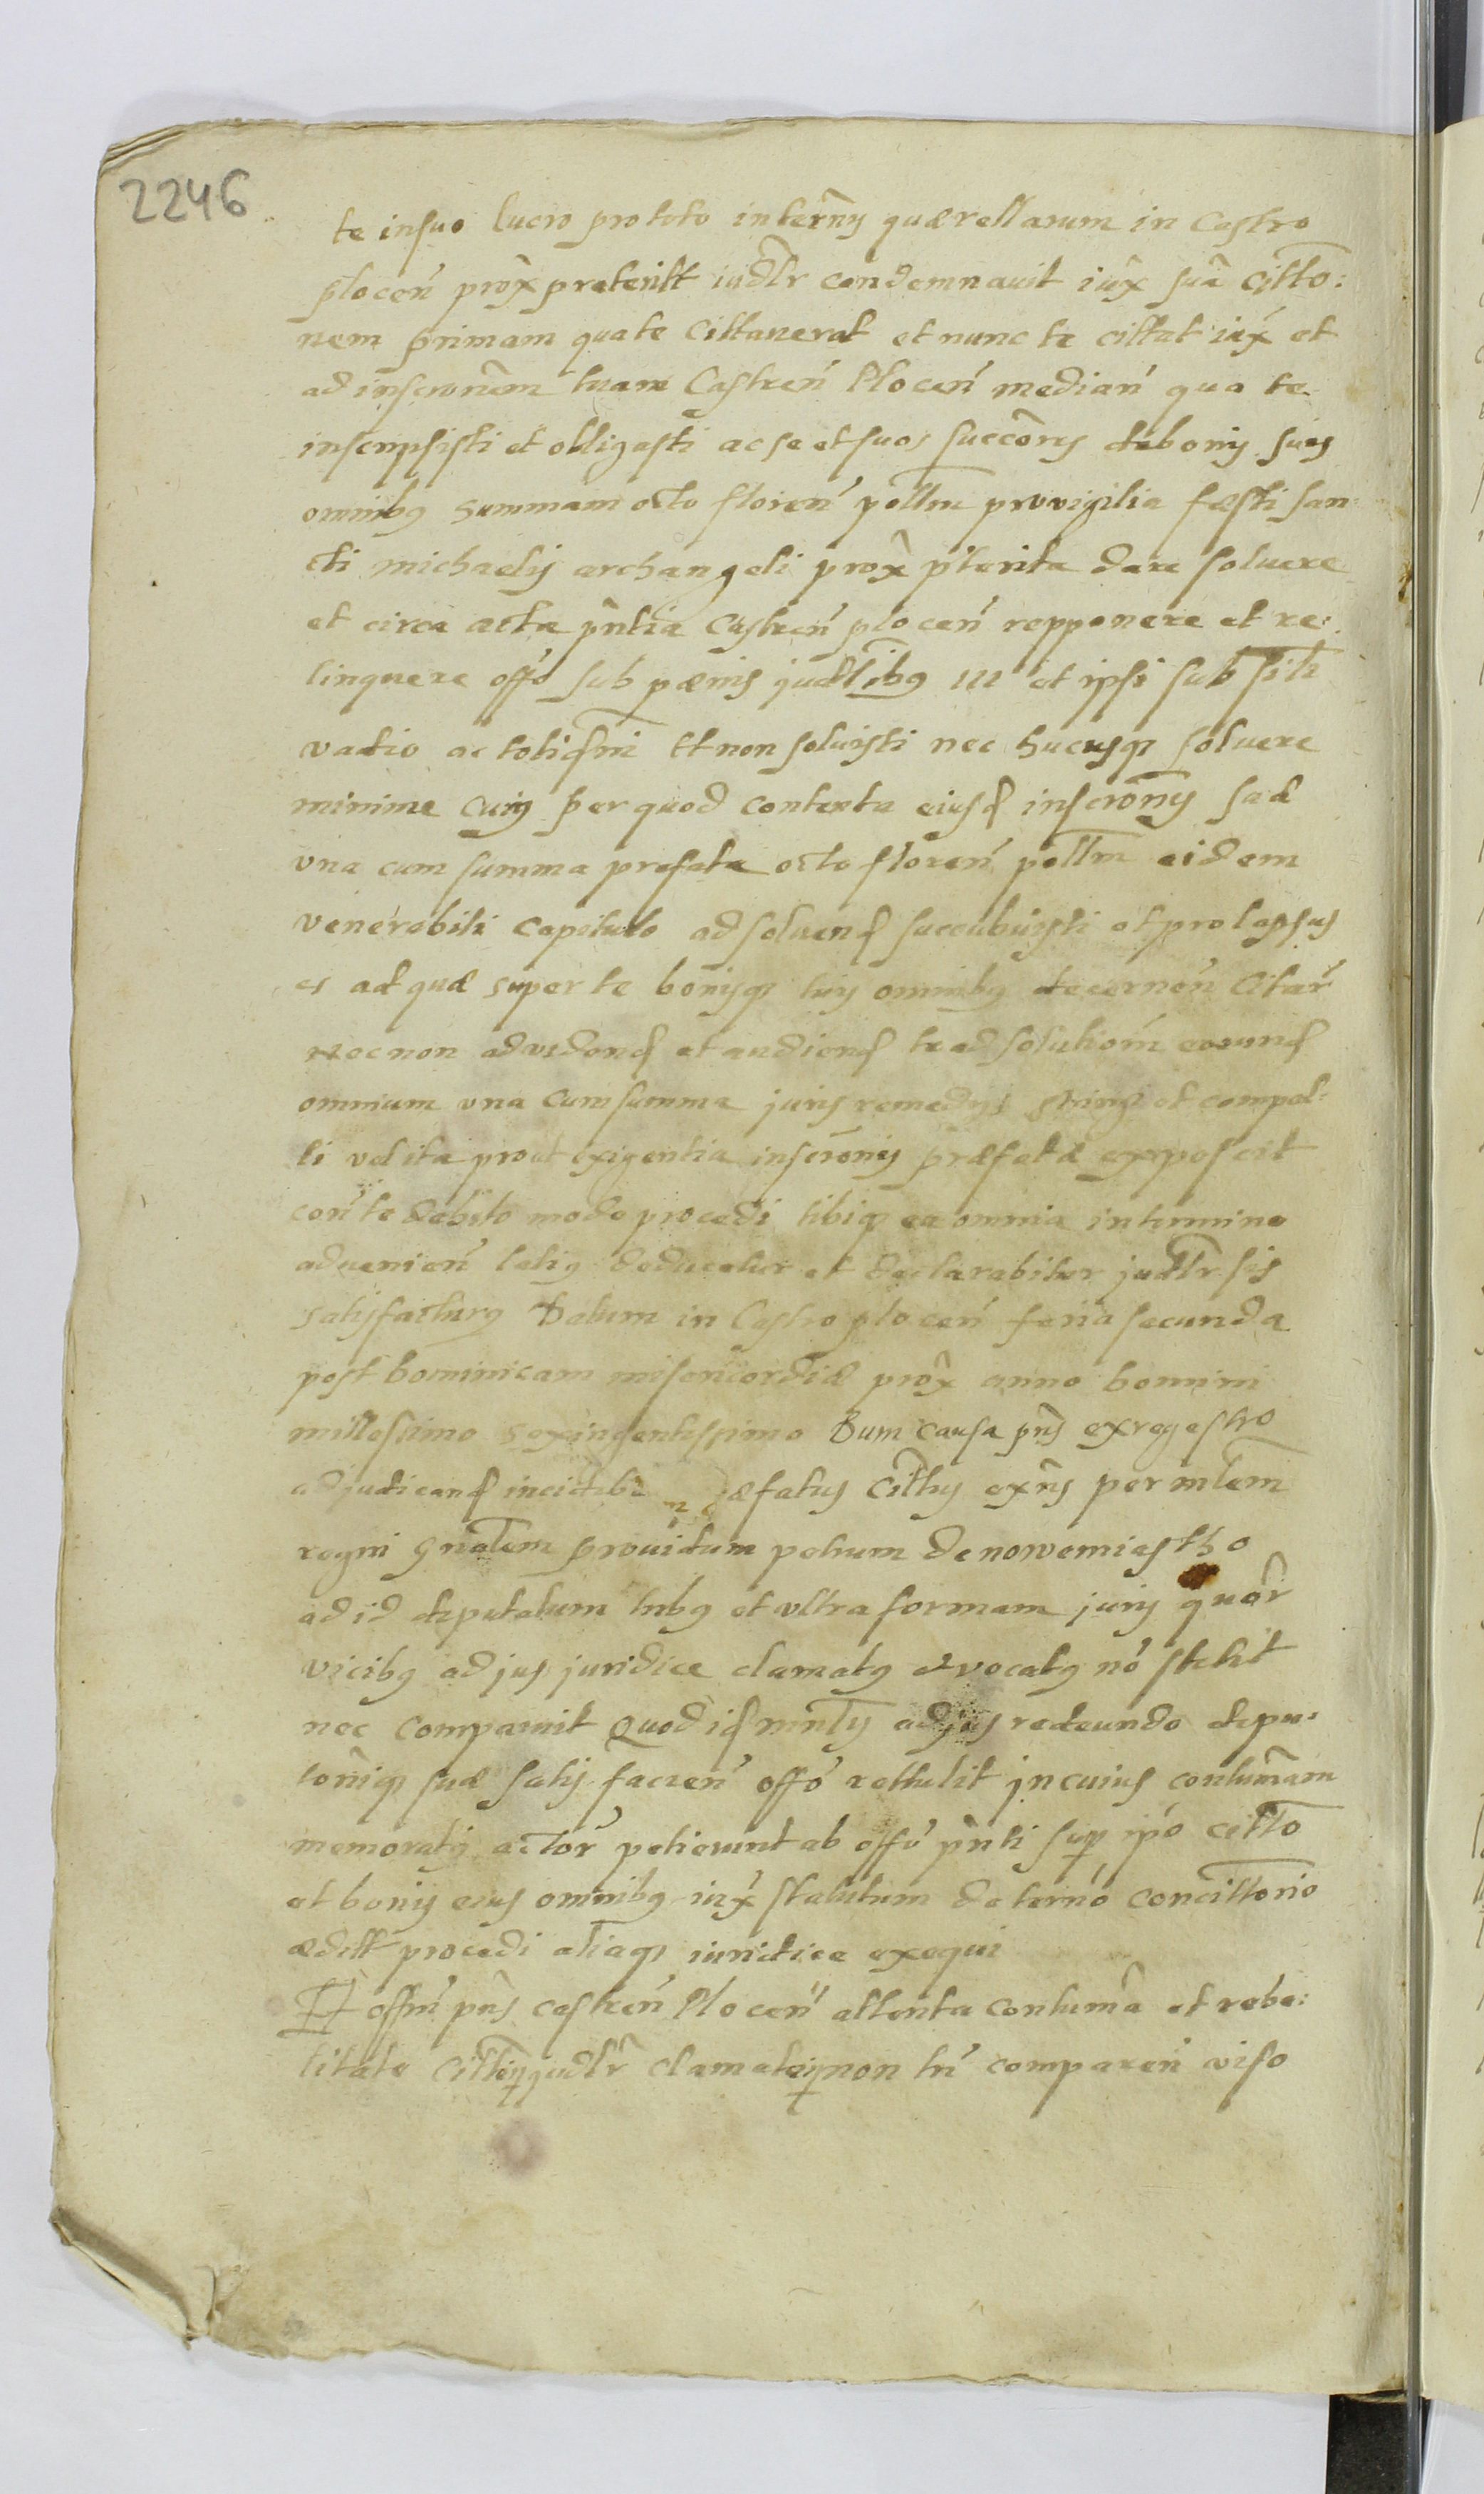 2246
te in suo lucro pro toto in term̃ys quærellarum in Castro
plocen̄ prox̃ preteritt iudĩr condemnauit iux̃ suã citto:
nem primam qua te Cittauerat et nunc te cittat iux̃ et
ad inscronem̃ tuam Castren̄ Plocen̄ median̄ qua te
inscripsisti et obligasti ac se et suos succorẽs de bonis suis
omnibꝰ summam octo floren̄ pollm̃ pro vigilia fæsti san:
cti michaelis archangeli prox̃ pt̃erita dare soluere
et circa acta pñtia Castren̄ plocen̄ repponere et re:
linquere offõ sub pænis judl̃ibꝰ III et ipsi sub sil̃i
vadio ac totidm̃ Et non soluisti nec hucusqꝫ soluere
minime curas per quod contenta eiusd inscrõnis vad
vna cum summa prefata octo floren̄ pollm̃ eidem
venerabili Capitulo ad soluend succubuisti et prolapsus
es ad quæ super te bonisqꝫ tuis omnibꝰ decernen̄ Citar̃
Necnon ad vidend et audiend te ad solutiom̃ eorund
omnium vna cum summa juris remedys stringi et compel:
li vel ita prout exigentia inscrõnis præfatæ exposcit
con̄ te debito modo procedi tibiqꝫ ea omnia in termino
aduenien̄ latiꝰ deducetur et declarabitur judlr̃ sis
satisfacturꝰ Datum in Castro plocen̄ feria secunda
post Dominicam misericordiæ prox̃ anno Domini
millesimo sexingentissimo Dum causa pñs ex regestro
adjudicand præfatus Cittus exñs per mlem̃
regni gñalem prouidum petrum de nowemiastho
ad id deputatum tribꝰ et vltra formam juris quar̃
vicibꝰ ad jus juridice clamatꝰ et vocatꝰ nõ stetit
nec comparuit Quod id mñlis ad jus redeundo depu:
toñiqꝫ suæ satis facien̄ offõ rettulit In cuius contumãm
memoratꝰ actor̃ petierunt ab offõ pñti sup ipõ citto
et bonis eius omnibꝰ iux̃ statutum de termõ concittorio
æditt procedi aliaqꝫ iuridice exequi
Et offm̃ pñs castren̄ Plocen̄ attenta contumã et rebe:
litate Cittiqꝫ judlr̃ clamatiqꝫ non tñ comparen̄ viso